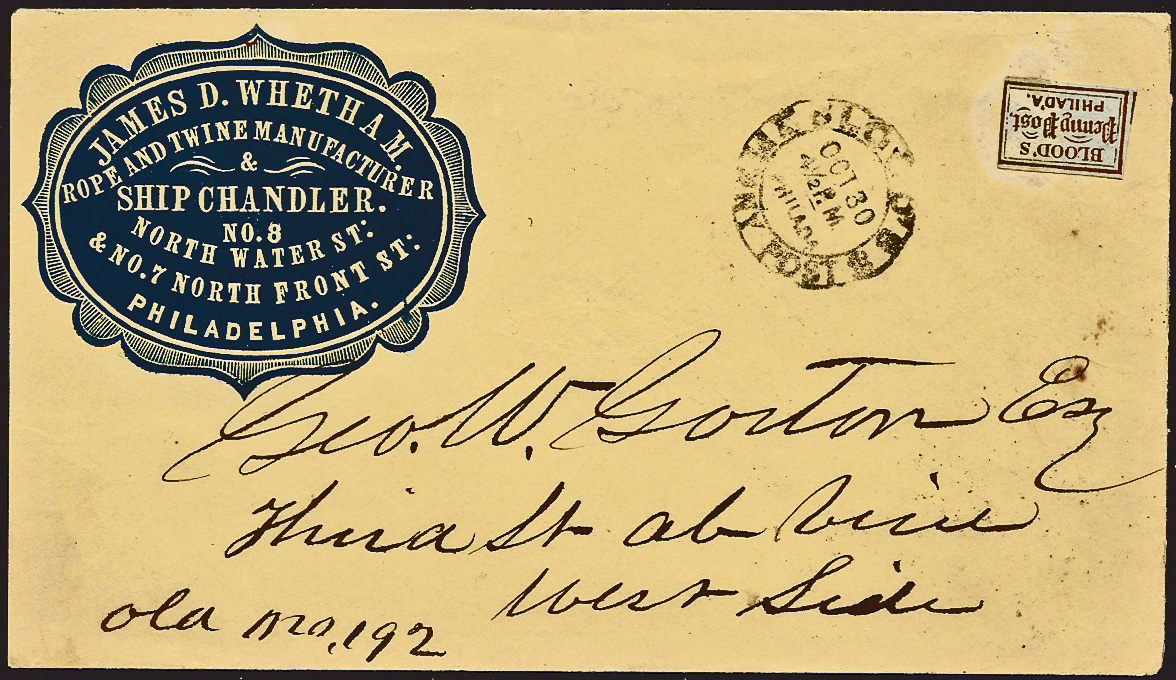 JAMES D. WHETHAM
ROPE AND TWINE MANUFACTURER
&
SHIP CHANDLER.
NO. 8
NORTH WATER ST:
& NO. 7 NORTH FRONT ST:
PHILADELPHIA.
OCT 30
4½ P.M.
PHILADA
BLOOD'S
Penny Post.
PHILADA.
Geo. W. Gorton Esq
Third St ab Vine
West Side
Old No, 192